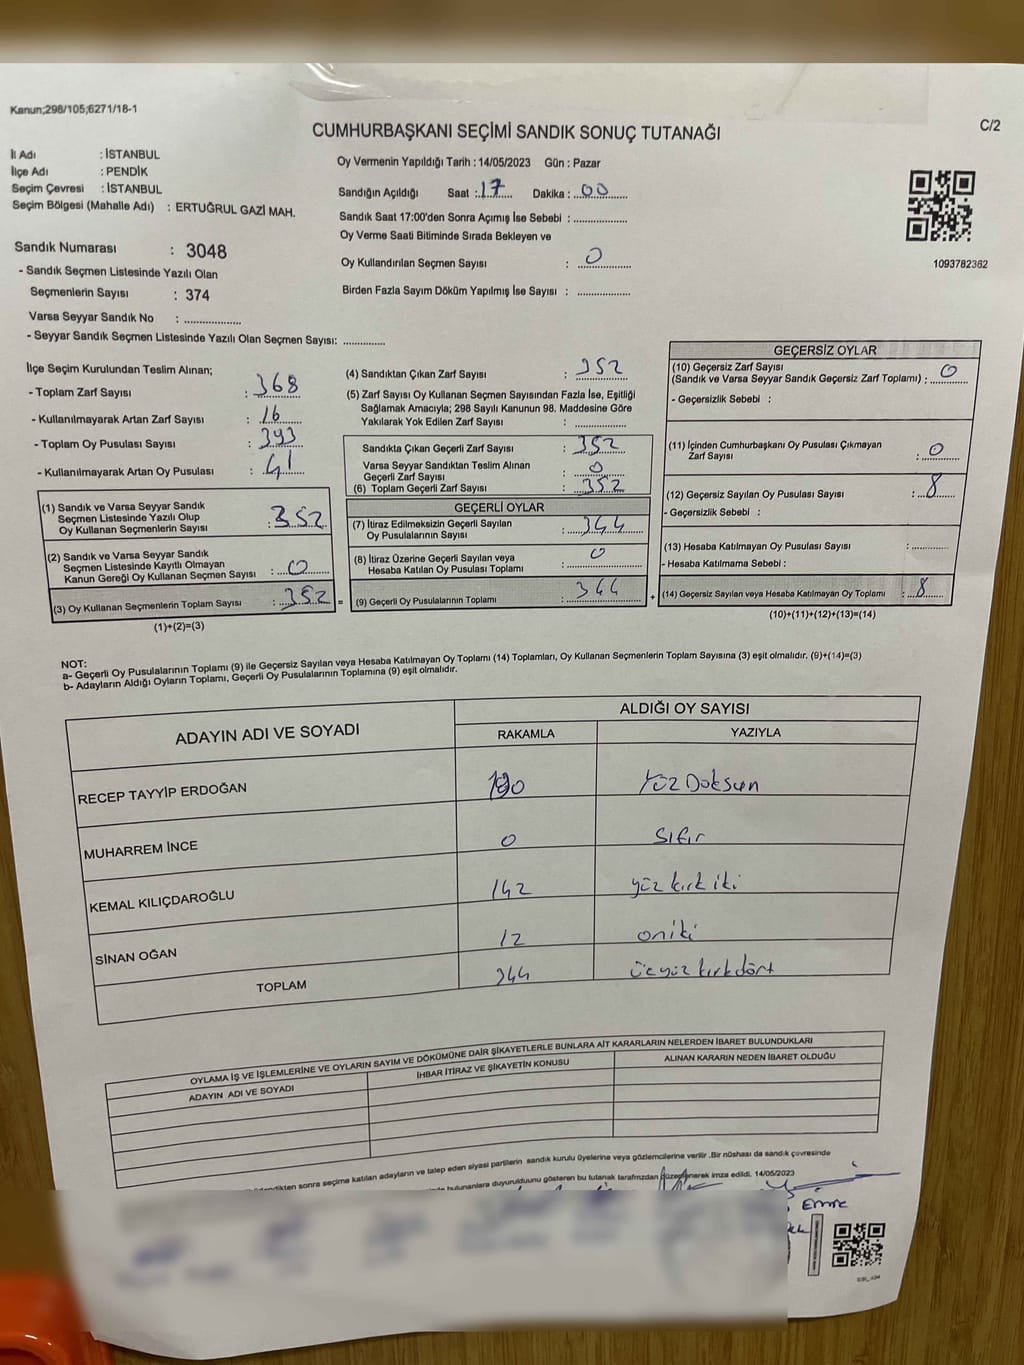 Kanun;298/105;6271/18-1
C/2
CUMHURBAŞKANI SEÇİMİ SANDIK SONUÇ TUTANAĞI
İl Adı : İSTANBUL
İlçe Adı : PENDİK
Seçim Çevresi : İSTANBUL
Seçim Bölgesi (Mahalle Adı) : ERTUĞRUL GAZİ MAH.
Sandık Numarası : 3048
- Sandık Seçmen Listesinde Yazılı Olan
Seçmenlerin Sayısı : 374
Varsa Seyyar Sandık No : ....................
- Seyyar Sandık Seçmen Listesinde Yazılı Olan Seçmen Sayısı: ..............
Oy Vermenin Yapıldığı Tarih : 14/05/2023 Gün : Pazar
Sandığın Açıldığı Saat : 17 Dakika : 00
Sandık Saat 17:00'den Sonra Açımış İse Sebebi : ...................
Oy Verme Saati Bitiminde Sırada Bekleyen ve
Oy Kullandırılan Seçmen Sayısı : 0
Birden Fazla Sayım Döküm Yapılmış İse Sayısı : ...................
1093782362
İlçe Seçim Kurulundan Teslim Alınan;
- Toplam Zarf Sayısı : 368
- Kullanılmayarak Artan Zarf Sayısı : 16
- Toplam Oy Pusulası Sayısı : 393
- Kullanılmayarak Artan Oy Pusulası : 41
(1) Sandık ve Varsa Seyyar Sandık
Seçmen Listesinde Yazılı Olup
Oy Kullanan Seçmenlerin Sayısı : 352
(2) Sandık ve Varsa Seyyar Sandık
Seçmen Listesinde Kayıtlı Olmayan
Kanun Gereği Oy Kullanan Seçmen Sayısı : 0
(3) Oy Kullanan Seçmenlerin Toplam Sayısı : 352 =
(1)+(2)=(3)
(4) Sandıktan Çıkan Zarf Sayısı : 352
(5) Zarf Sayısı Oy Kullanan Seçmen Sayısından Fazla İse, Eşitliği
Sağlamak Amacıyla; 298 Sayılı Kanunun 98. Maddesine Göre
Yakılarak Yok Edilen Zarf Sayısı : ..................
Sandıkta Çıkan Geçerli Zarf Sayısı : 352
Varsa Seyyar Sandıktan Teslim Alınan
Geçerli Zarf Sayısı : 0
(6) Toplam Geçerli Zarf Sayısı : 352
GEÇERLİ OYLAR
(7) İtiraz Edilmeksizin Geçerli Sayılan
Oy Pusulalarının Sayısı : 344
(8) İtiraz Üzerine Geçerli Sayılan veya
Hesaba Katılan Oy Pusulası Toplamı : 0
(9) Geçerli Oy Pusulalarının Toplamı : 344 +
GEÇERSİZ OYLAR
(10) Geçersiz Zarf Sayısı
(Sandık ve Varsa Seyyar Sandık Geçersiz Zarf Toplamı) : 0
- Geçersizlik Sebebi :
(11) İçinden Cumhurbaşkanı Oy Pusulası Çıkmayan
Zarf Sayısı : 0
(12) Geçersiz Sayılan Oy Pusulası Sayısı : 8
- Geçersizlik Sebebi :
(13) Hesaba Katılmayan Oy Pusulası Sayısı : ..............
- Hesaba Katılmama Sebebi :
(14) Geçersiz Sayılan veya Hesaba Katılmayan Oy Toplamı : 8
(10)+(11)+(12)+(13)=(14)
NOT:
a- Geçerli Oy Pusulalarının Toplamı (9) ile Geçersiz Sayılan veya Hesaba Katılmayan Oy Toplamı (14) Toplamları, Oy Kullanan Seçmenlerin Toplam Sayısına (3) eşit olmalıdır. (9)+(14)=(3)
b- Adayların Aldığı Oyların Toplamı, Geçerli Oy Pusulalarının Toplamına (9) eşit olmalıdır.
ADAYIN ADI VE SOYADI
ALDIĞI OY SAYISI
RAKAMLA YAZIYLA
RECEP TAYYİP ERDOĞAN 190 Yüz Doksan
MUHARREM İNCE 0 Sıfır
KEMAL KILIÇDAROĞLU 142 yüz kırk iki
SİNAN OĞAN 12 oniki
TOPLAM 344 üçyüz kırkdört
OYLAMA İŞ VE İŞLEMLERİNE VE OYLARIN SAYIM VE DÖKÜMÜNE DAİR ŞİKAYETLERLE BUNLARA AİT KARARLARIN NELERDEN İBARET BULUNDUKLARI
ADAYIN ADI VE SOYADI İHBAR İTİRAZ VE ŞİKAYETİN KONUSU ALINAN KARARIN NEDEN İBARET OLDUĞU
sonra seçime katılan adayların ve talep eden siyasi partilerin sandık kurulu üyelerine veya gözlemcilerine verilir .Bir nüshası da sandık çevresinde
bulunanlara duyurulduunu gösteren bu tutanak tarafımzdan düzenlenerek imza edildi. 14/05/2023
Emre